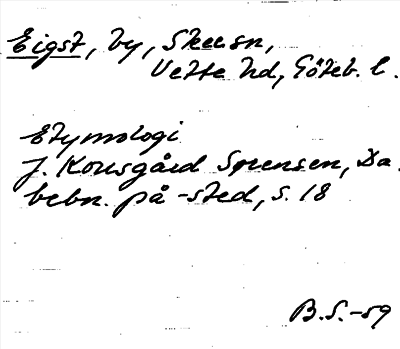 Eigst, by, Skee sn,
Vette hd, Göteb. l.
Etymologi
J. Kousgård Sørensen, Da.
bebn. på -sted, s. 18
B.S.-59